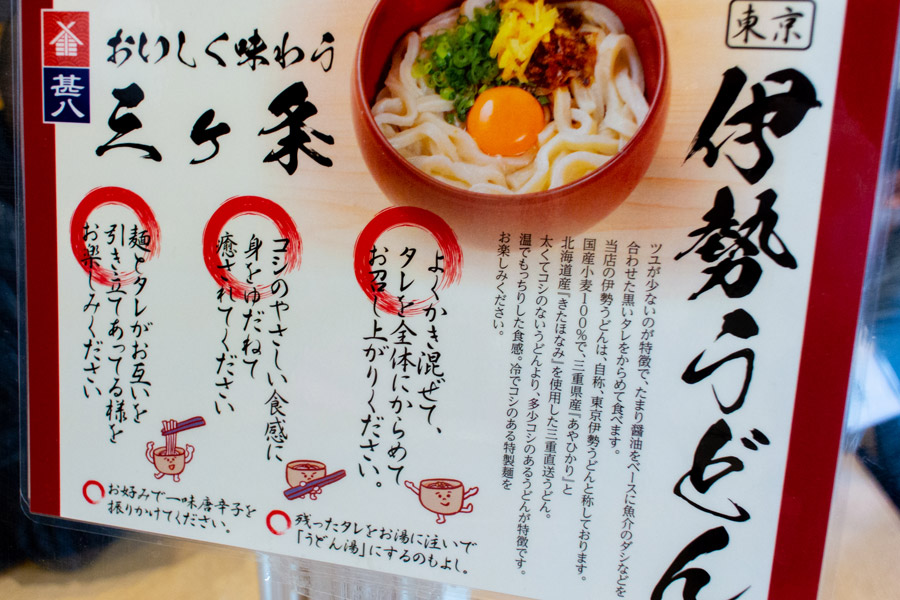 東京
伊勢うどん
ツユが少ないのが特徴で、たまり醤油をベースに魚介のダシなどを
合わせた黒いタレをからめて食べます。
当店の伊勢うどんは、自称、東京伊勢うどんと称しております。
国産小麦100%で、三重県産『あやひかり』と
北海道産『きたほなみ』を使用した三重直送うどん。
太くてコシのないうどんより、多少コシのあるうどんが特徴です。
温でもっちりした食感。冷でコシのある特製麺を
お楽しみください。
甚八
おいしく味わう
三ヶ条
よくかき混ぜて、
タレを全体にからめて
お召し上がりください。
コシのやさしい食感に
身をゆだねて
癒されてください
麺とタレがお互いを
引き立てあってる様を
お楽しみください
残ったタレをお湯に注いで
「うどん湯」にするのもよし。
お好みで一味唐辛子を
振りかけてください。